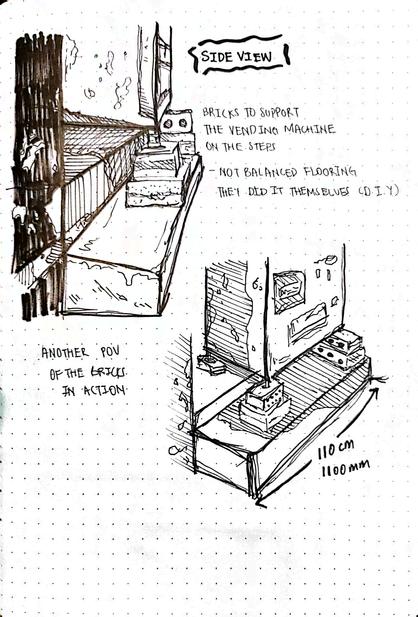 SIDE VIEW
BRICKS TO SUPPORT
THE VENDING MACHINE
ON THE STEPS
- NOT BALANCED FLOORING
THEY DID IT THEMSELVES (D.I.Y)
ANOTHER POV
OF THE BRICKS
IN ACTION
110 CM
1100 MM